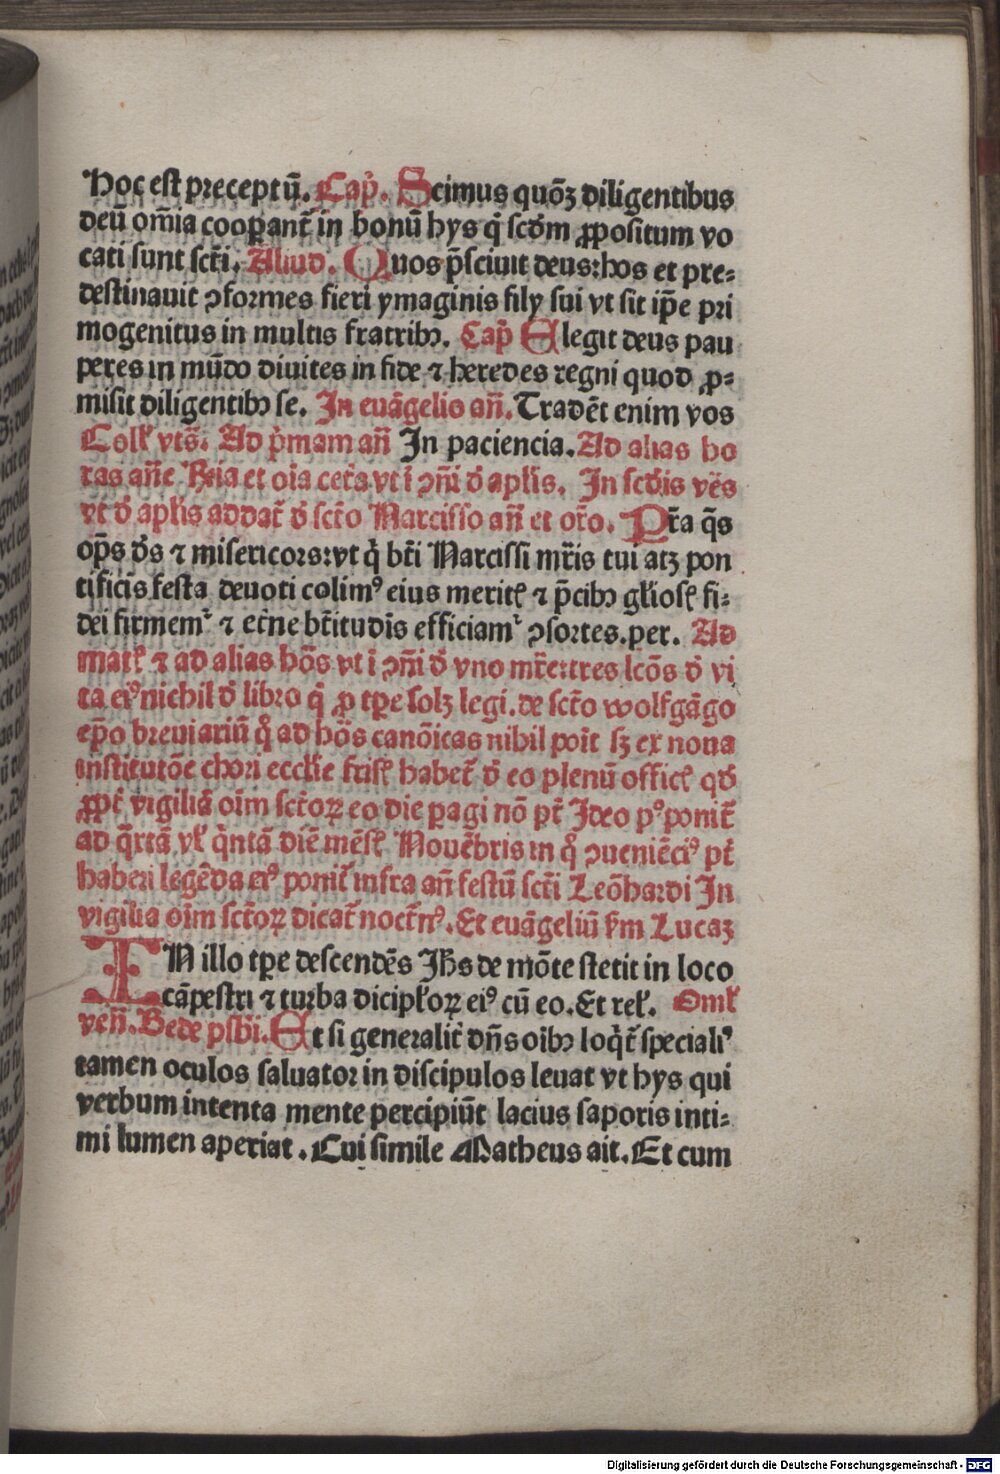 Hoc est preceptū. Cap̄. Scimus quōʒ diligentibus
deū om̄ia cooꝑant̄ in bonū hys q̄ scdm̄ ꝓpositum vo
cati sunt scti̅. Aliud. Quos p̄sciuit deus:hos et pre⸗
destinauit ꝯformes fieri ymaginis fily sui vt sit ip̄e pri
mogenitus in multis fratribꝫ. Cap̄ Elegit deus pau
peres in mūdo diuites in fide ⁊ heredes regni quod ꝓ⸗
misit diligentibꝫ se. In euāgelio an̄. Tradēt enim vos
Colł vts̄. Ad p̄mam an̄ In paciencia. Ad alias ho
ras an̄e Kr̄ia et oīa cet̄a vt ī ꝯn̄i d̄ aplīs. In scdīs vēs
vt d̄ aplīs addat̄ d̄ sctō Narcisso an̄ et or̄o. Pr̄ta q̄s
op̄s d̄s ⁊ misericors:vt q̄ bt̄i Narcissi mr̄is tui atꝫ pon
tificis̄ festa deuoti colimꝰ eius meritꝭ ⁊ p̄cibꝫ gl̄iosꝭ fi⸗
dei firmemʳ ⁊ et̄ne bt̄itudīs efficiamʳ ꝯsortes.per. Ad
matꝭ ⁊ ad alias hōs vt ī ꝯn̄i d̄ vno mr̄e:tres lcōs d̄ vi
ta eiꝰ nichil d̄ libro q̄ ꝓ tp̄e solꝫ legi. de sctō wolfgāgo
ep̄o breuiariū q̊ ad hōs canōicas nihil poīt sꝫ ex noua
institutōe chori eccl̄ie frisꝭ habet̄ d̄ eo plenū officꝭ qd̄
ꝓpt̄ vigiliā oīm sctōꝝ eo die pagi nō pt̄ Ideo pꝰponit̄
ad q̄rtā vł q̄ntā diē mēsꝭ Nouēbris in q̊ ꝯueniēciꝰ pt̄
haberi legēda eiꝰ ponit̄ infra an̄ festū scti̅ Leōhardi In
vigilia oīm sctōꝝ dicat̄ noct̄nꝰ. Et euāgeliū ẜm Lucaꝫ
IN illo tp̄e descendēs Jh̄s de mōte stetit in loco
cāpestri ⁊ turba dicipłoꝝ eiꝰ cū eo. Et rel̄. Omł
ven̄. Bede psb̄i. Et si generalit̄ dn̄s oībꝫ loq̄t̄ specialiꝰ
tamen oculos saluator in discipulos leuat vt hys qui
verbum intenta mente percipiūt lacius saporis inti⸗
mi lumen aperiat . Cui simile Matheus ait. Et cum
Digitalisierung gefördert durch die Deutsche Forschungsgemeinschaft - DFG